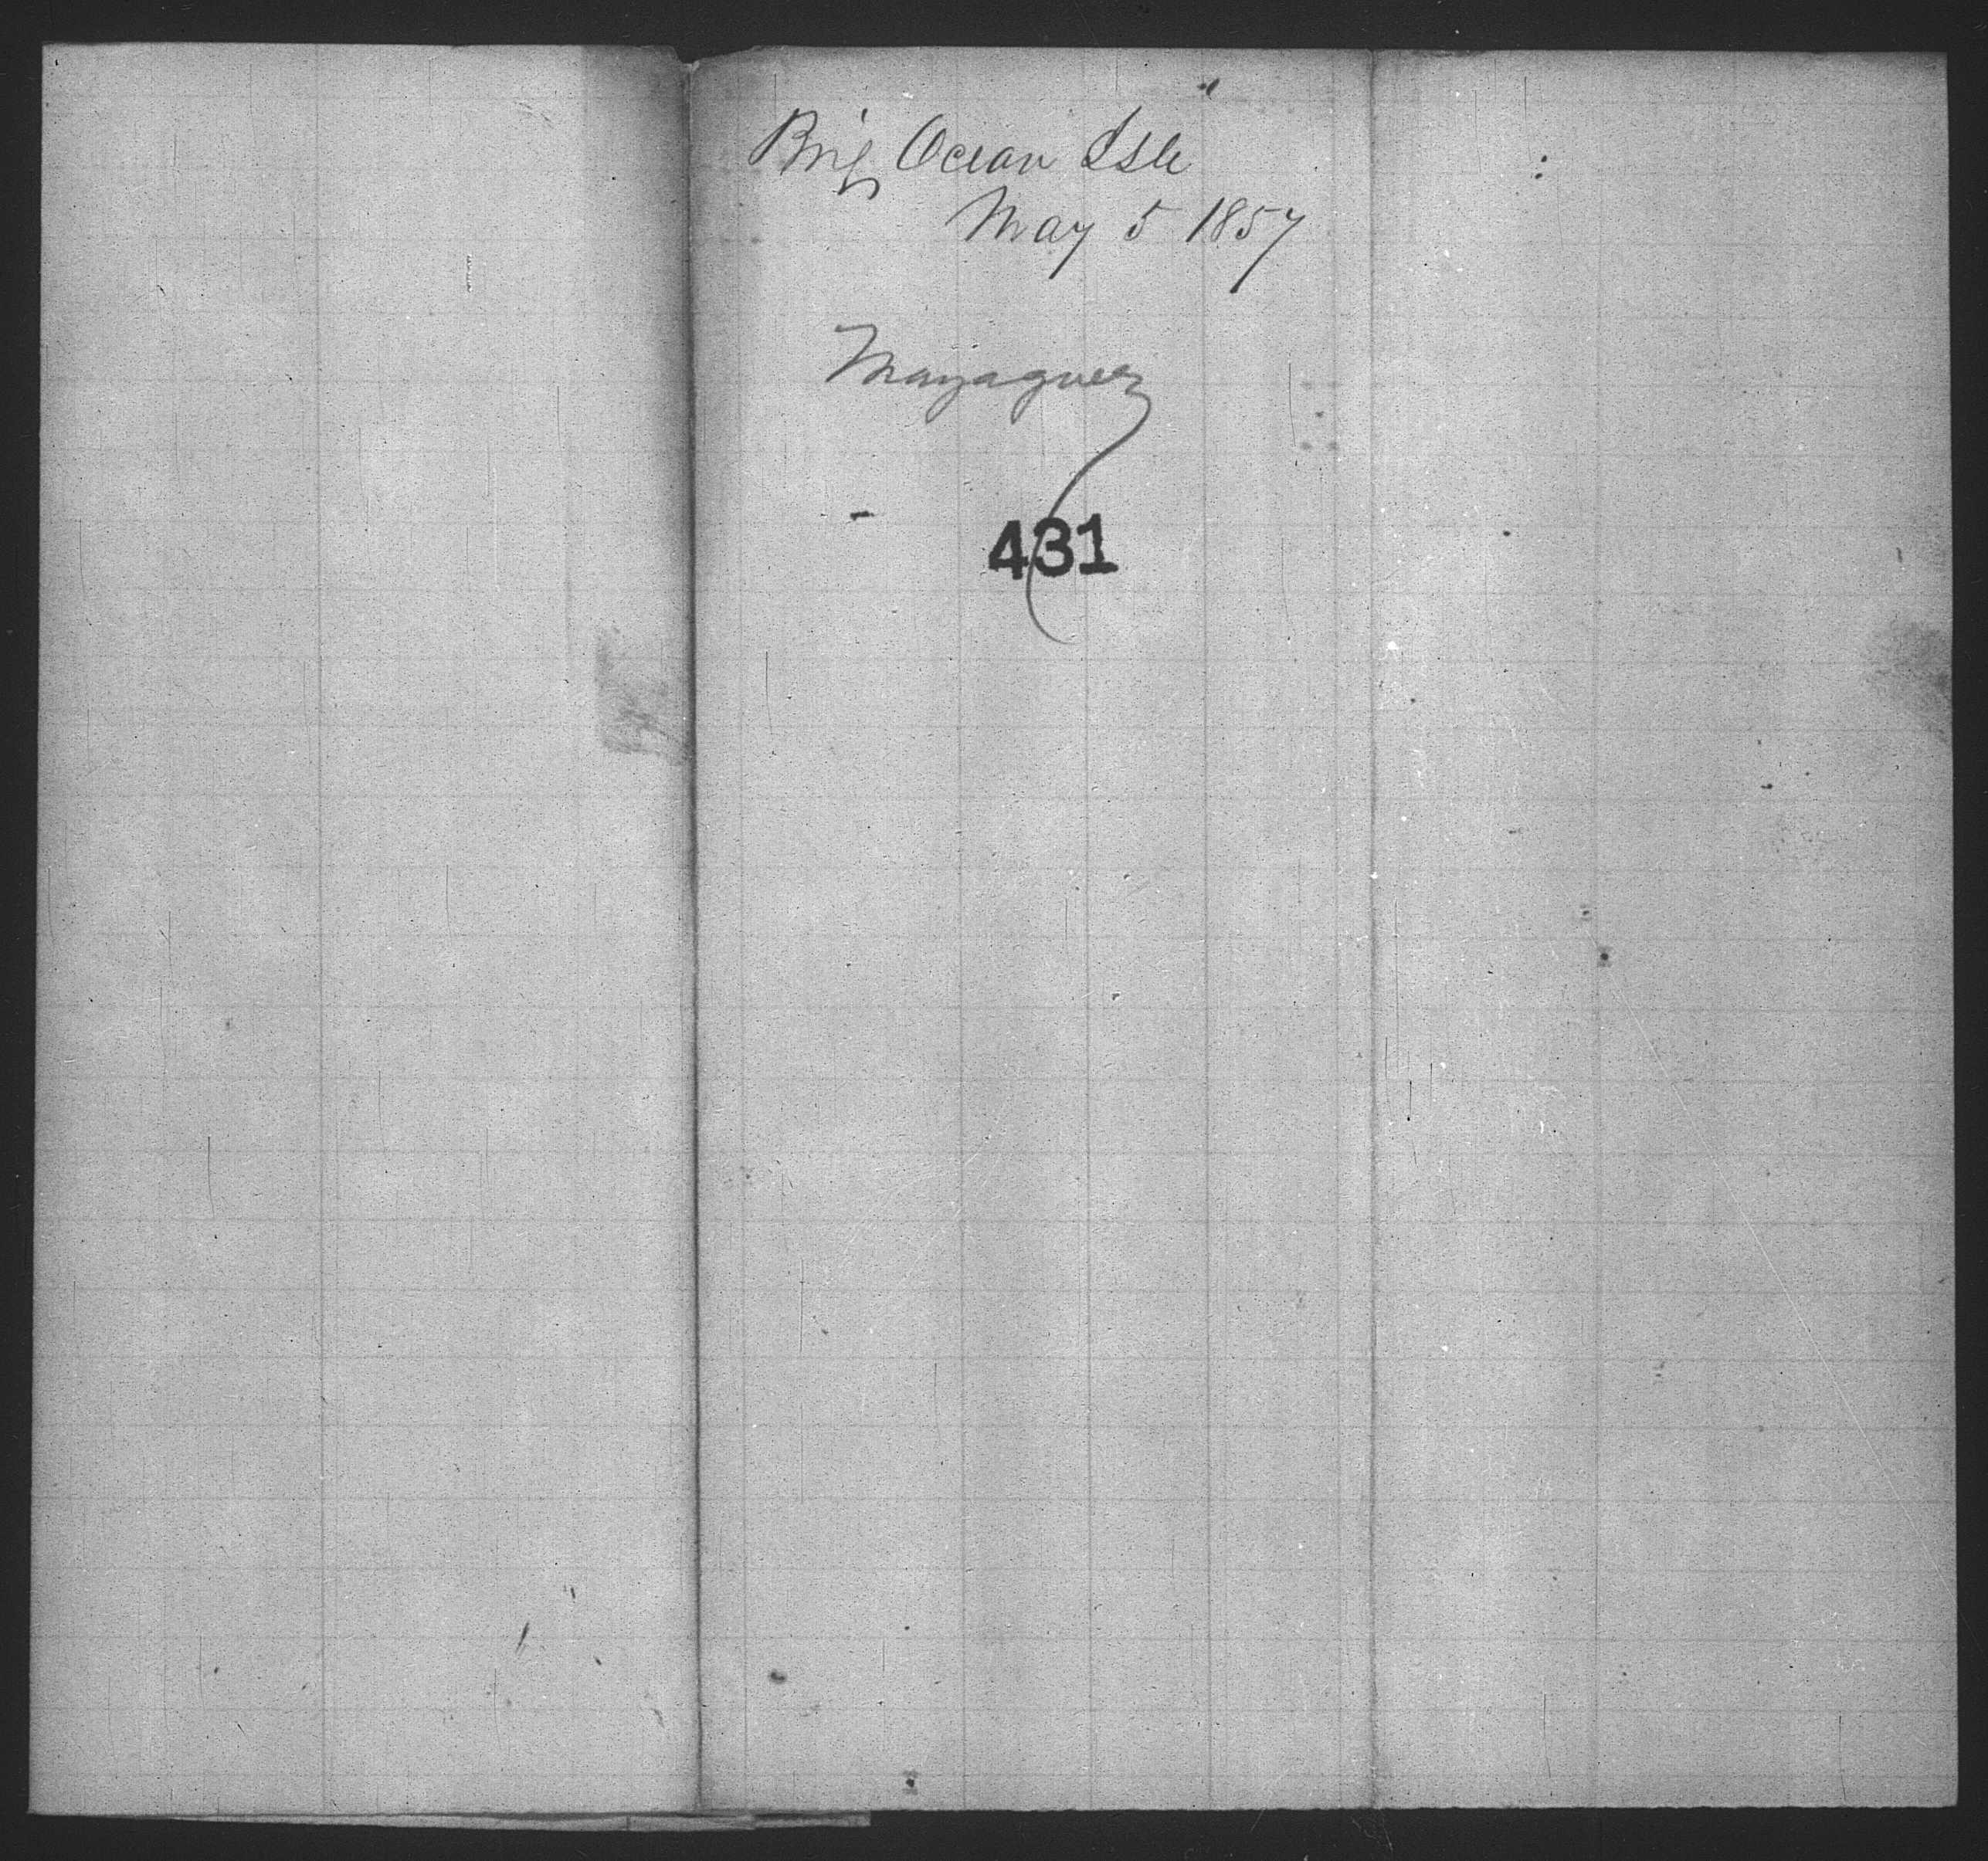 Brig Ocean Isle
May 5 1857
Mayaguez
431